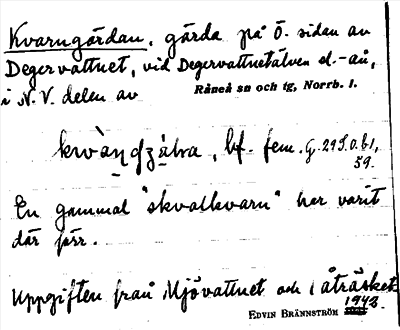 Kvarngärdan, gärda på Ö. sidan av
Degervattnet, vid Degervattnetälven el. -ån,
i N.V. delen av Råneå sn och tg, Norrb. l.
bf. fem. G. 295.0.b1,
59.
En gammal "skvalkvarn" har varit
där förr.
Uppgiften från Mjövattnet och Åträsket
EDVIN BRÄNNSTRÖM 1943.